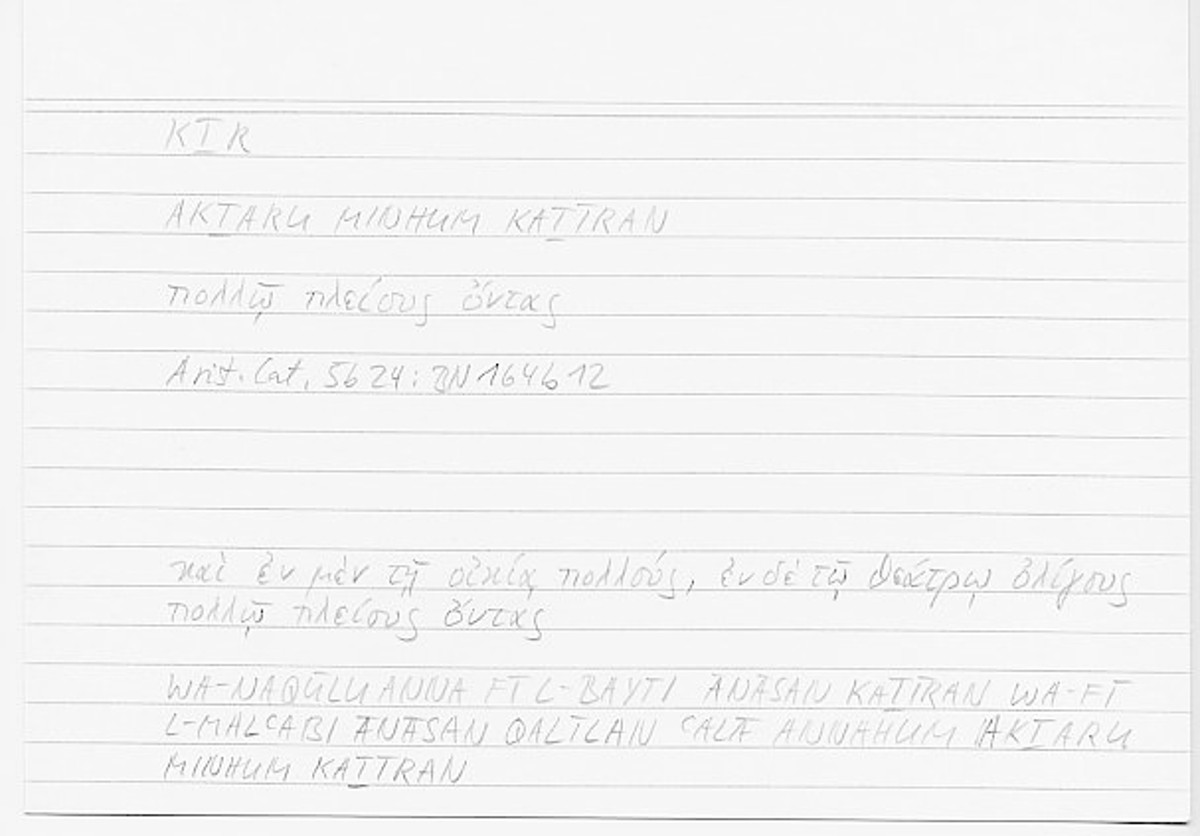 KṮR
AKṮARU MINHUM KAṮĪRAN
πολλῷ πλείους ὄντας
Arist. Cat. 5b24; BN 164b12
καὶ ἐν μὲν τῇ οἰκίᾳ πολλούς, ἐν δὲ τῷ θεάτρῳ ὀλίγους
πολλῷ πλείους ὄντας
WA-NAQŪLU ANNA FĪ L-BAYTI ANĀSAN KAṮĪRAN WA-FĪ
L-MALʿABI ANĀSAN QALĪLAN ʿALĀ ANNAHUM AKṮARU
MINHUM KAṮĪRAN